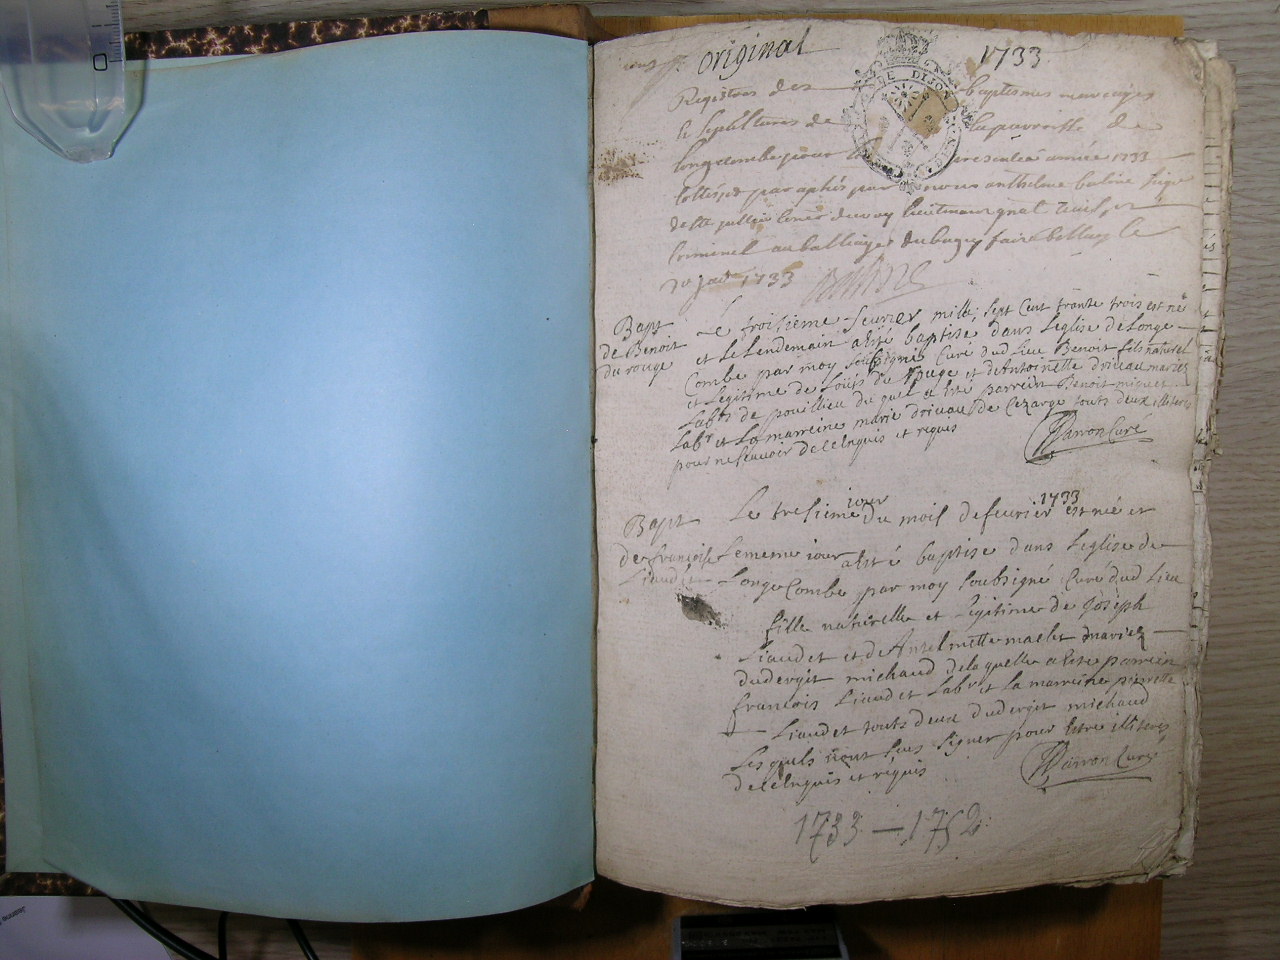 original 1733
DE DIJON
Registres des baptesmes mariages
et sepultures de la parroisse de
Longecombe pour presente année 1733
Cottés et paraphés par nous anthelme
lieutenant gnal Civil et
Criminel au balliage du bugey Bellay le
1733
Bapt
de Benoit
du rouge
Le troisieme feuvrier mille sept Cent trante trois est né
et Le Lendemain a esté baptisé dans Leglise de Longe-
Combe par moy soubsigné Curé dud Lieu Benoit fils naturel
et Legitime de Louis du Rouge et d'Antoinette driuau mariés
Labrs de pouillieu duquel a esté parrein Benoit miguet
Labr et La marreine marie driuau de Cezarge touts deux illiteres
pour ne scauoir de ce Enquis et requis
Marron Curé
Bapt
de françoise
Liaudet
Le tresieme jour du mois de feurier 1733 est né et
Le meme iour a esté baptise dans Leglise de
Longe Combe par moy soubsigné Curé dud Lieu
fille naturelle et Legitime de Joseph
Liaudet et de Antelmette maclet mariez
du dergit michaud de laquelle a esté parrein
francois Liaudet Labr et la marreine pierrette
Liaudet touts deux du dergit michaud
Lesquels n'ont sceu signer pour Estre illiteres
de ce Enquis et requis
Marron Curé
1733 — 1752